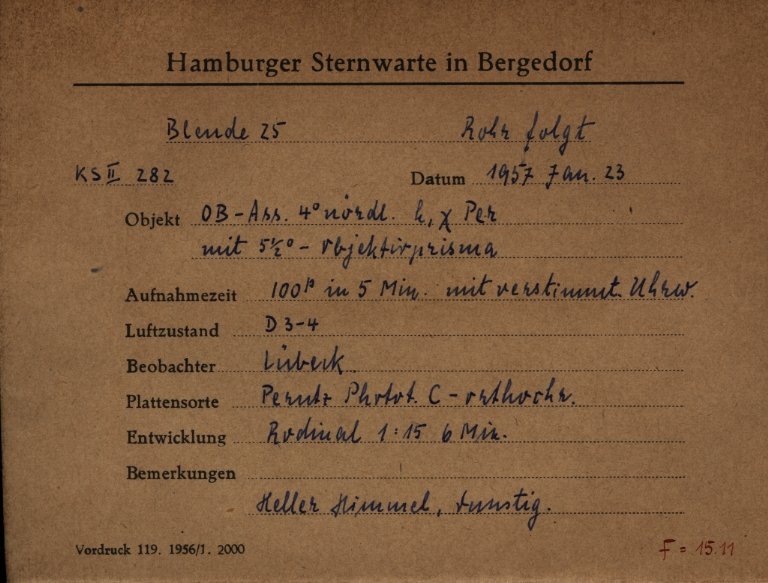 Hamburger Sternwarte in Bergedorf
Blende 25 Rohr folgt
KS II 282 Datum 1957 Jan. 23
Objekt OB-Ass. 4° nördl. h, χ Per
mit 5½° - Objektivprisma
Aufnahmezeit 100ᵖ in 5 Min. mit verstimmt. Uhrw.
Luftzustand D 3-4
Beobachter Lübeck
Plattensorte Perutz Phototh. C - orthochr.
Entwicklung Rodinal 1:15 6 Min.
Bemerkungen
Heller Himmel, dunstig.
Vordruck 119. 1956/J. 2000 F = 15.11